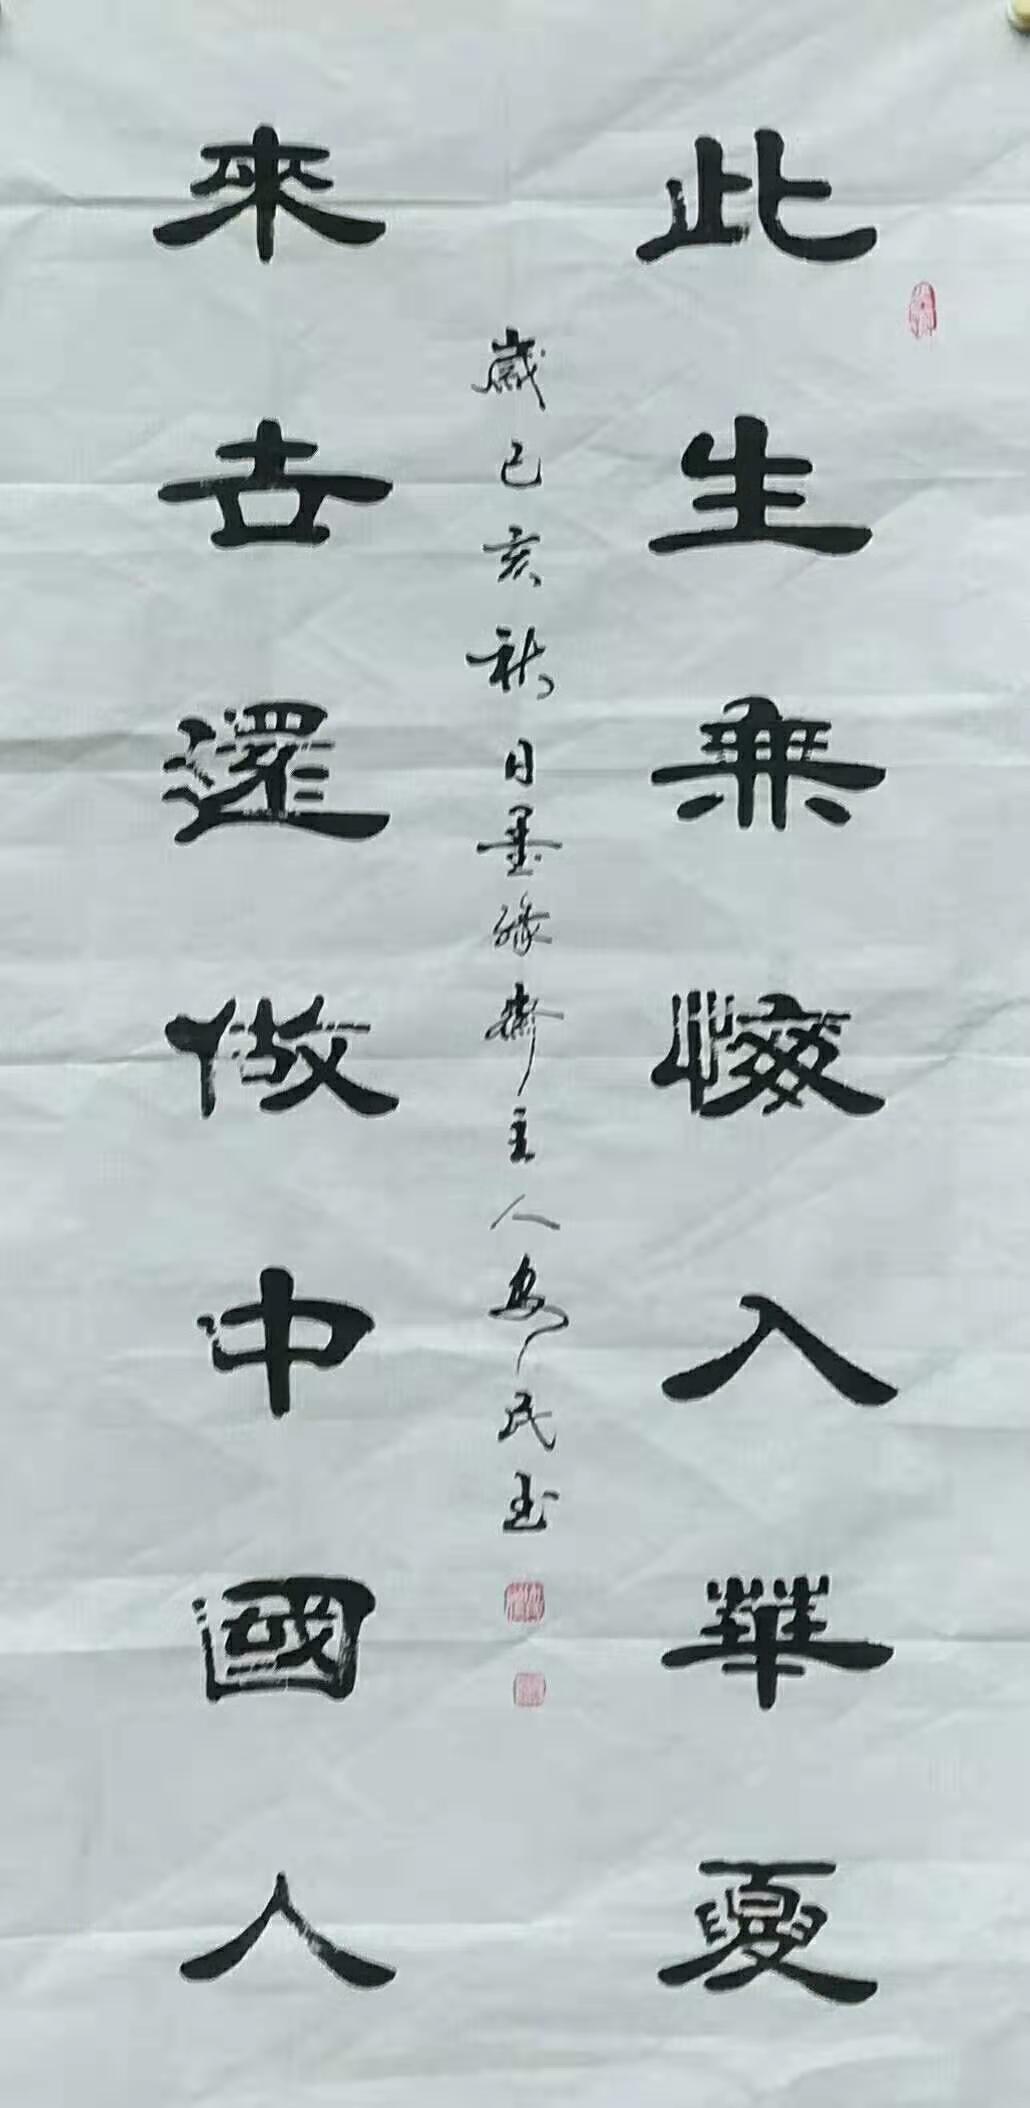 此生無悔入華夏
來去還做中國人
歲己亥秋日墨緣齋主人安民書